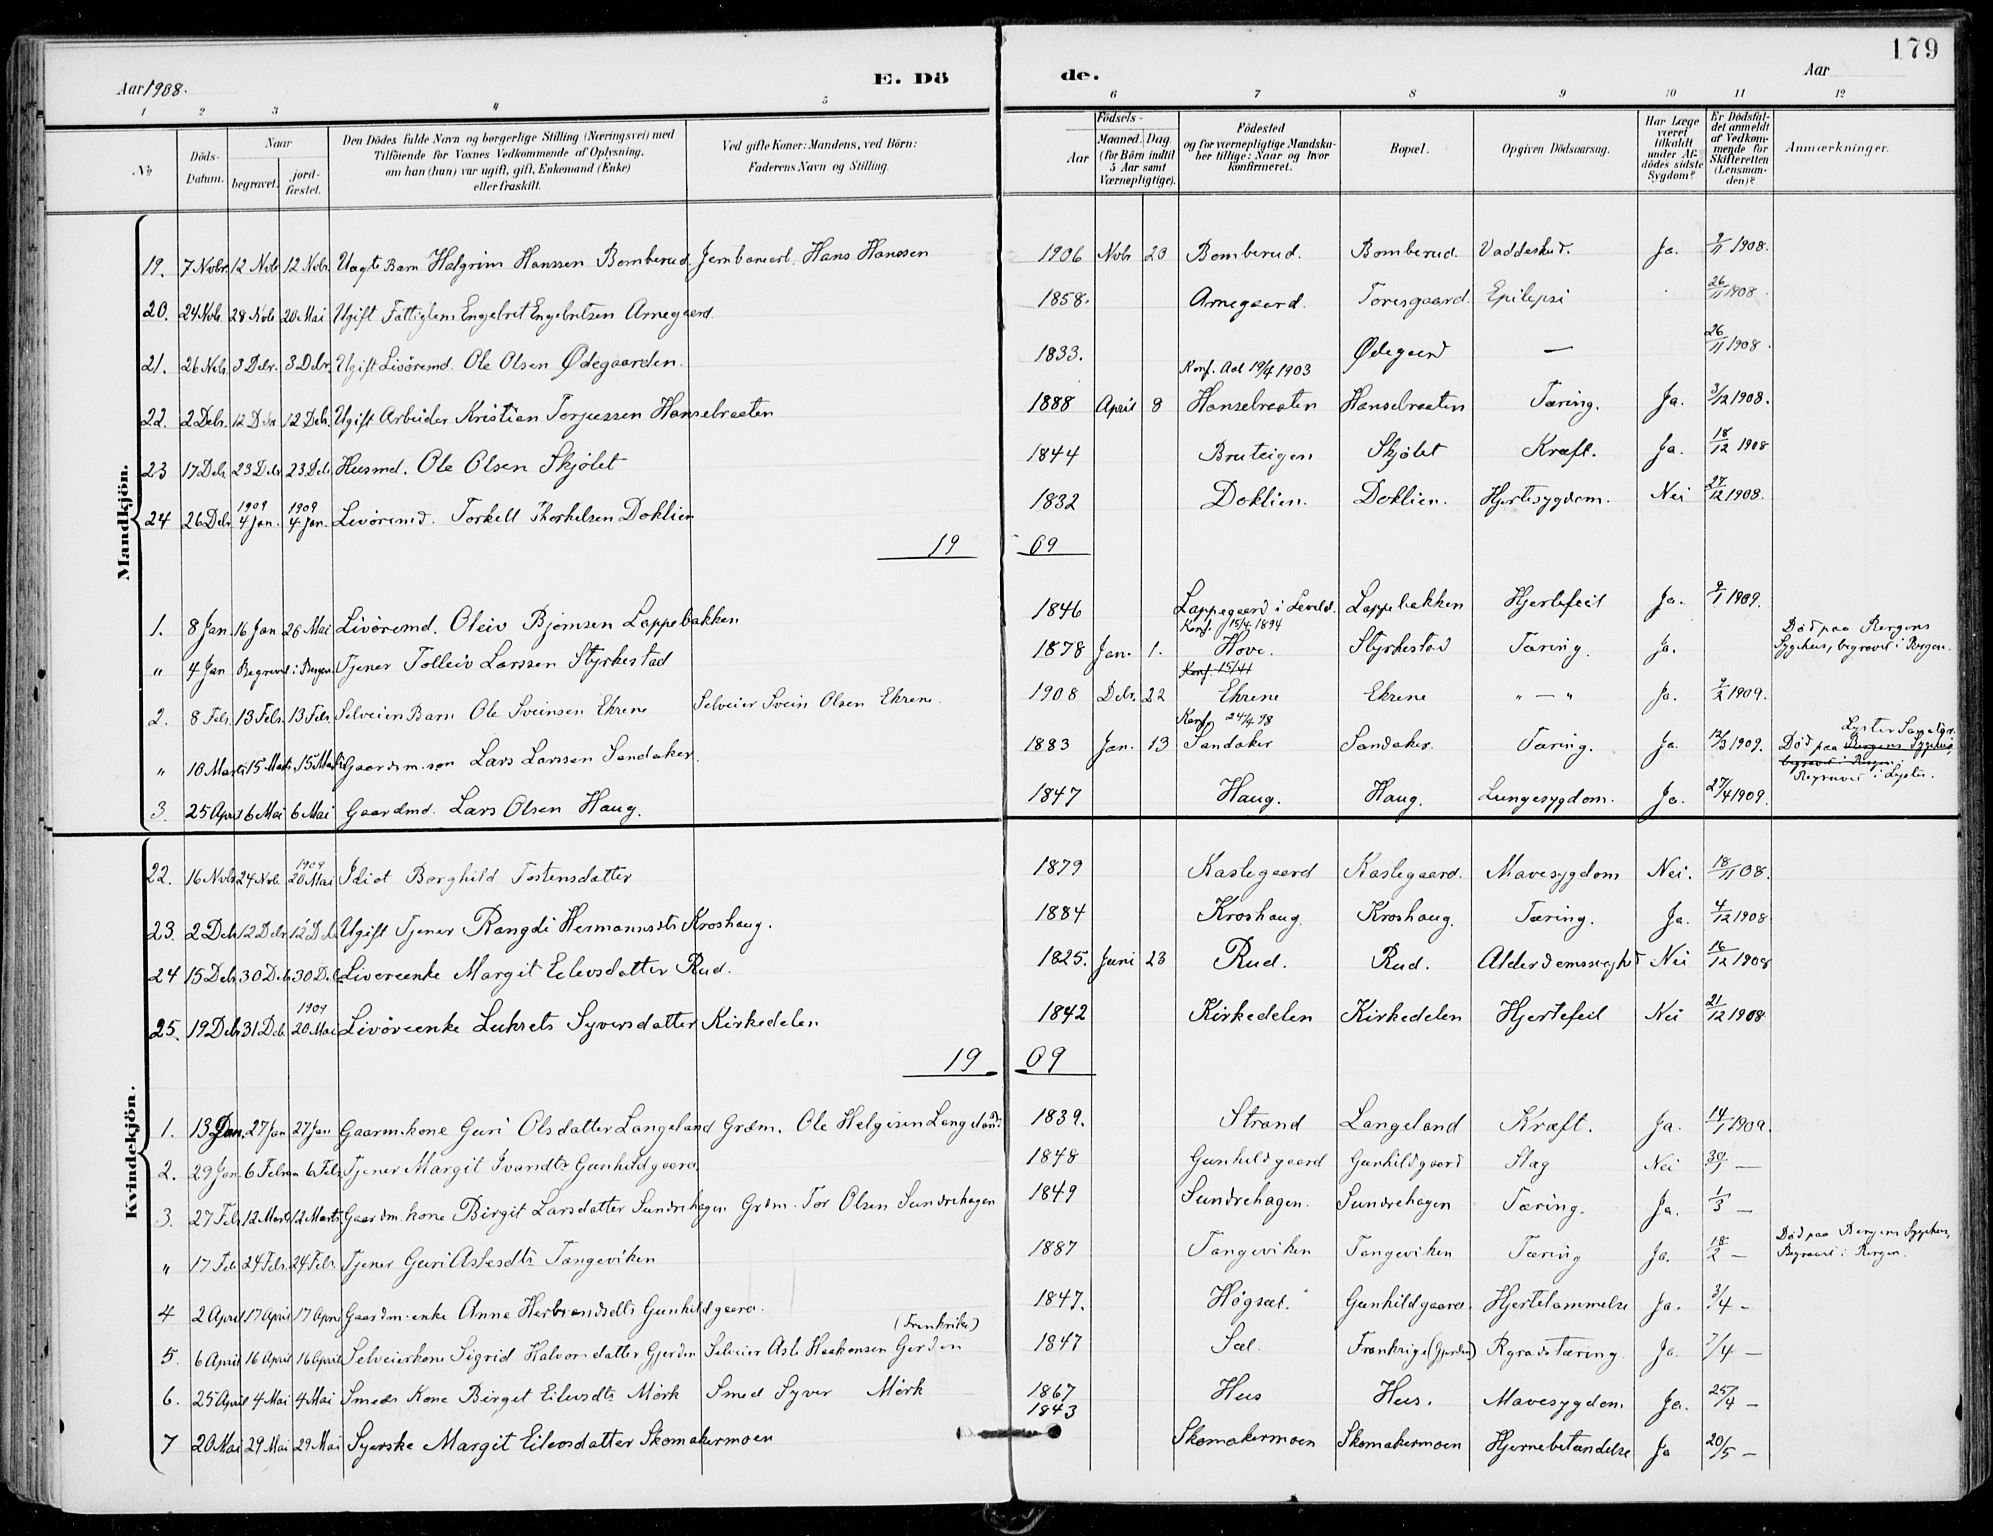 179
Aar 1908.
E. Dö de.
Aar
1 2 3 4 5 6 7 8 9 10 11 12
No
Döds-Datum.
Naar
begravet.
jord-fæstet.
Den Dödes fulde Navn og borgerlige Stilling (Næringsvei) med
Tilföiende for Voxnes Vedkommende af Oplysning,
om han (hun) var ugift, gift, Enkemand (Enke)
eller fraskilt.
Ved gifte Koner: Mandens, ved Börn:
Faderens Navn og Stilling.
Födsels-
Aar
Maaned. Dag.
(for Börn indtil
5 Aar samt
Værnepligtige).
Födested
og for værnepligtige Mandska-
ber tillige: Naar og hvor
konfirmeret.
Bopæl.
Opgiven Dödsaarsag.
Har Læge
været
tilkaldt
under Af-
dödes sidste
Sygdom?
Er Dödsfal-
det anmeldt
af Vedkom-
mende for
Skifteretten
(Lensman-
den)?
Anmærkninger.
Mandkjön.
19. 7 Nobr. 12 Nob 12 Nobr. Uægte Barn Halgrim Hanssen Bomberud Jernbanearb. Hans Hanssen 1906 Nobr 20 Bomberud. Bomberud. Ja. 9/11 1908.
20. 24 Nob. 28 Nob 20 Mai Ugift Fattiglem Engebret Engebretsen Arnegaard. 1858. Arnegaard. Toresgaard. Epilepsi 26/11 1908.
21. 26 Nob. 3 Debr. 3 Debr. Ugift Livöremd. Ole Olsen Ødegaarden. 1833. Ødegaard — 26/11 1908.
Konf. Aal 19/4 1903
22. 2 Debr. 12 Debr 12 Debr. Ugift Arbeider Kristian Torjussen Hansebraaten 1888 April 8 Hansebraaten Hansebraaten Tæring. Ja. 3/12 1908.
23 17 Debr 23 Debr 23 Deb. Husmd. Ole Olsen Skjölet 1844 Bruteigen Skjölet Kræft. Ja. 18/12 1908
1909 1909
24 26 Debr 4 Jan. 4 Jan. Livöremd. Torkell Thorkelsen Doklien 1832 Doklien. Doklien. Hjertesygdom. Nei 27/12 1908.
19 09
1. 8 Jan. 16 Jan 26 Mai Livöremd. Oleiv Bjørnsen Lappebakken 1846 Lappegaard i Leveld. Lappebakken Hjertefeil Ja. 9/1 1909.
Konf. 15/4 1894
„ 4 Jan Begravet i Bergen Tjener Tolleiv Larssen Styrkestad 1878 Jan. 1. Hove. Styrkestad Tæring. Ja. Död paa Bergens
Sygehus, begravet i Bergen.
2. 8 Febr. 13 Febr. 13 Febr. Selveier Barn Ole Sveinsen Ekrene Selveier Svein Olsen Ekrene. 1908 Debr 22 Ekrene Ekrene „ — „ Ja. 9/2 1909.
Konf. 24/4 98
„ 10 Marts 15 Marts 15 Marts Gaardm. søn Lars Larssen Sandaker 1883 Jan. 13 Sandaker Sandaker. Tæring. Ja. 12/3 1909. Död paa Bergens Sygehus,
begravet i Bergen.
Begravet i Lyster.
3. 25 April 6 Mai 6 Mai Gaardmd. Lars Olsen Haug. 1847 Haug. Haug. Lungesygdom. Ja. 27/4 1909.
Kvindekjön.
1909
22. 16 Nobr 24 Nob. 20 Mai Idiot Borghild Tostensdatter 1879 Kaslegaard Kaslegaard. Mavesygdom Nei. 18/11 08.
23. 2 Deb 12 Debr. 12 Deb Ugift Tjener Rangdi Hermannsdtr Kroshaug. 1884 Kroshaug. Kroshaug. Tæring. Ja. 4/12 1908
24 15 Debr 30 Deb 30 Deb Livöreenke Margit Eilevsdatter Rud. 1825. Juni 23 Rud. Rud. Alderdomssvaghed Nei 16/12 1908
1909
25. 19 Debr 31 Deb. 20 Mai Livöreenke Lukrets Syversdatter Kirkedelen 1842 Kirkedelen Kirkedelen Hjertefeil Nei 21/12 1908
19 09
1. 13 Jan. 27 Jan 27 Jan Gaarm. kone Guri Olsdatter Langeland Grdm. Ole Helgesen Langeland 1839. Strand Langeland Kræft. Ja. 14/1 1909.
2. 29 Jan. 6 Febr 6 Febr. Tjener Margit Ivarsdtr Gunhildgaard 1848 Gunhildgaard Gunhildgaard Slag Nei 30/1 —
3. 27 Febr. 12 Marts 12 Marts. Gaardm. kone Birgit Larsdatter Sundrehagen Grdm. Tor Olsen Sundrehagen 1849 Sundrehagen. Sundrehagen Tæring. Ja. 1/3 —
„ 17 Feb 24 Febr. 24 Febr. Tjener Guri Aslesdtr Tangeviken 1887 Tangeviken Tangeviken Tæring Ja. 18/2 — Död paa Bergens Sygehus,
Begravet i Bergen.
4 2 April 17 April 17 April Gaardm. enke Anne Herbrandsdtr Gunhildgaard. 1847. Høgsæt. Gunhildgaard. Hjertelammelse Ja. 3/4 —
(Frankrike)
5. 6 April 16 April 16 April Selveierkone Sigrid Halvorsdatter Gjerden Selveier Asle Haakensen Gerden 1847 Sæl. Frankrige (Gjerden) Rgradstæring. Ja. 7/4 —
6. 25 April 4 Mai 4 Mai Smeds Kone Birget Eilevsdtr Mörk Smed Syver Mörk 1867 Hus Hus. Mavesygdom. Ja. 25/4 —
7 20 Mai 29 Mai 29 Mai Syerske Margit Eilevsdatter Skomakermoen 1843 Skomakermoen Skomakermoen Hjernebetændelse Ja 20/5 —